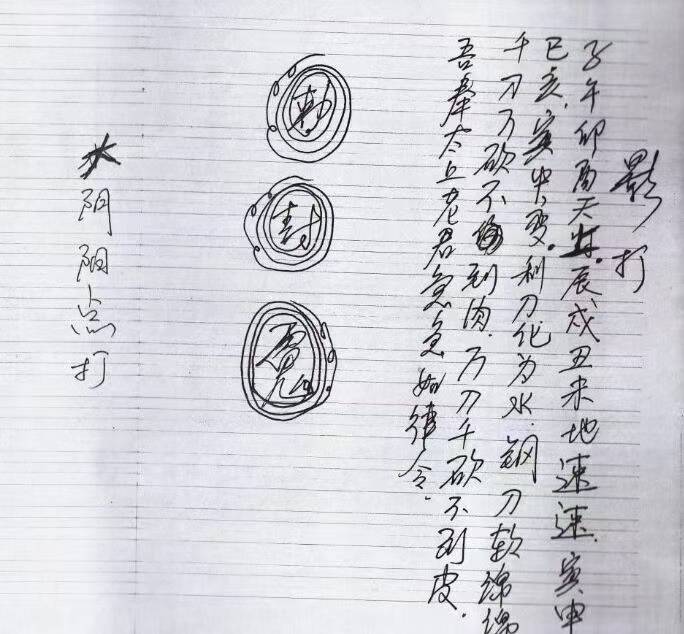 影打
子午卯酉天灵.辰戌丑未地速速.寅申
巳亥.寅中变.利刀化为水.钢刀软绵绵
千刀万砍不到肉.万刀千砍不到皮.
吾奉太上老君急急如律令.
勅
封
水阴阳点打